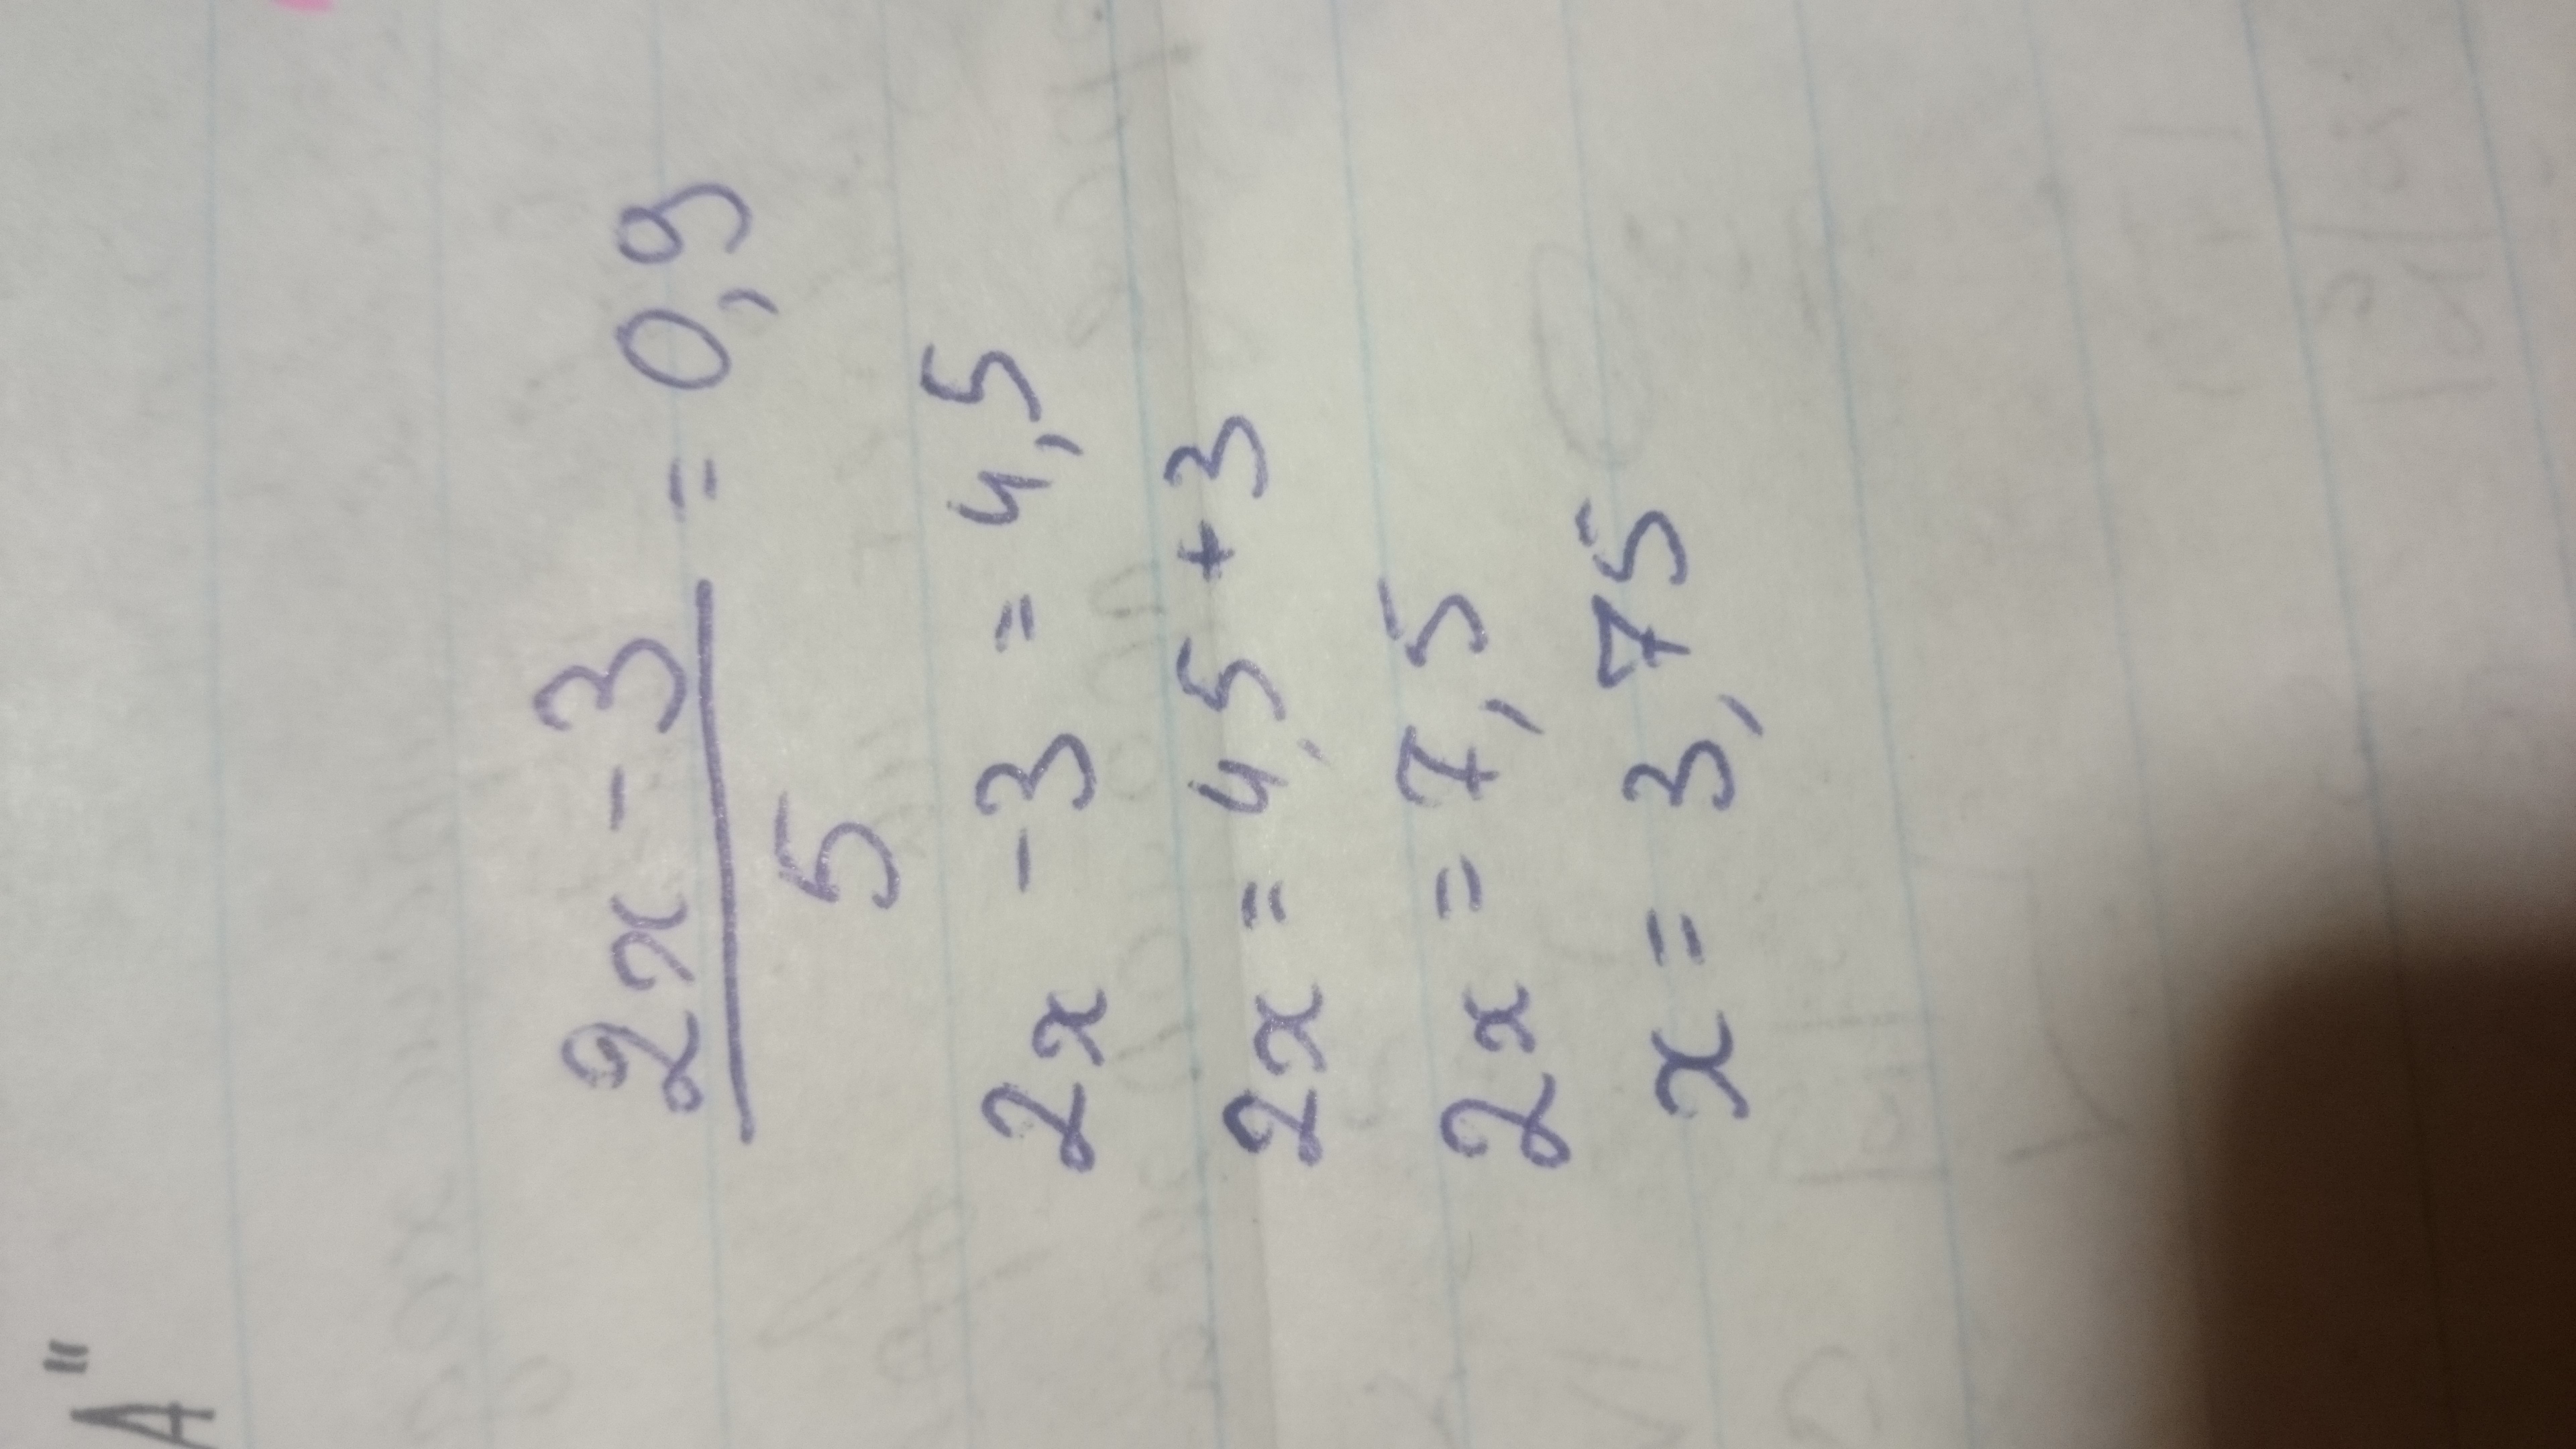 A"
2x - 3 / 5 = 0,9
2x - 3 = 4,5
2x = 4,5 + 3
2x = 7,5
x = 3,75